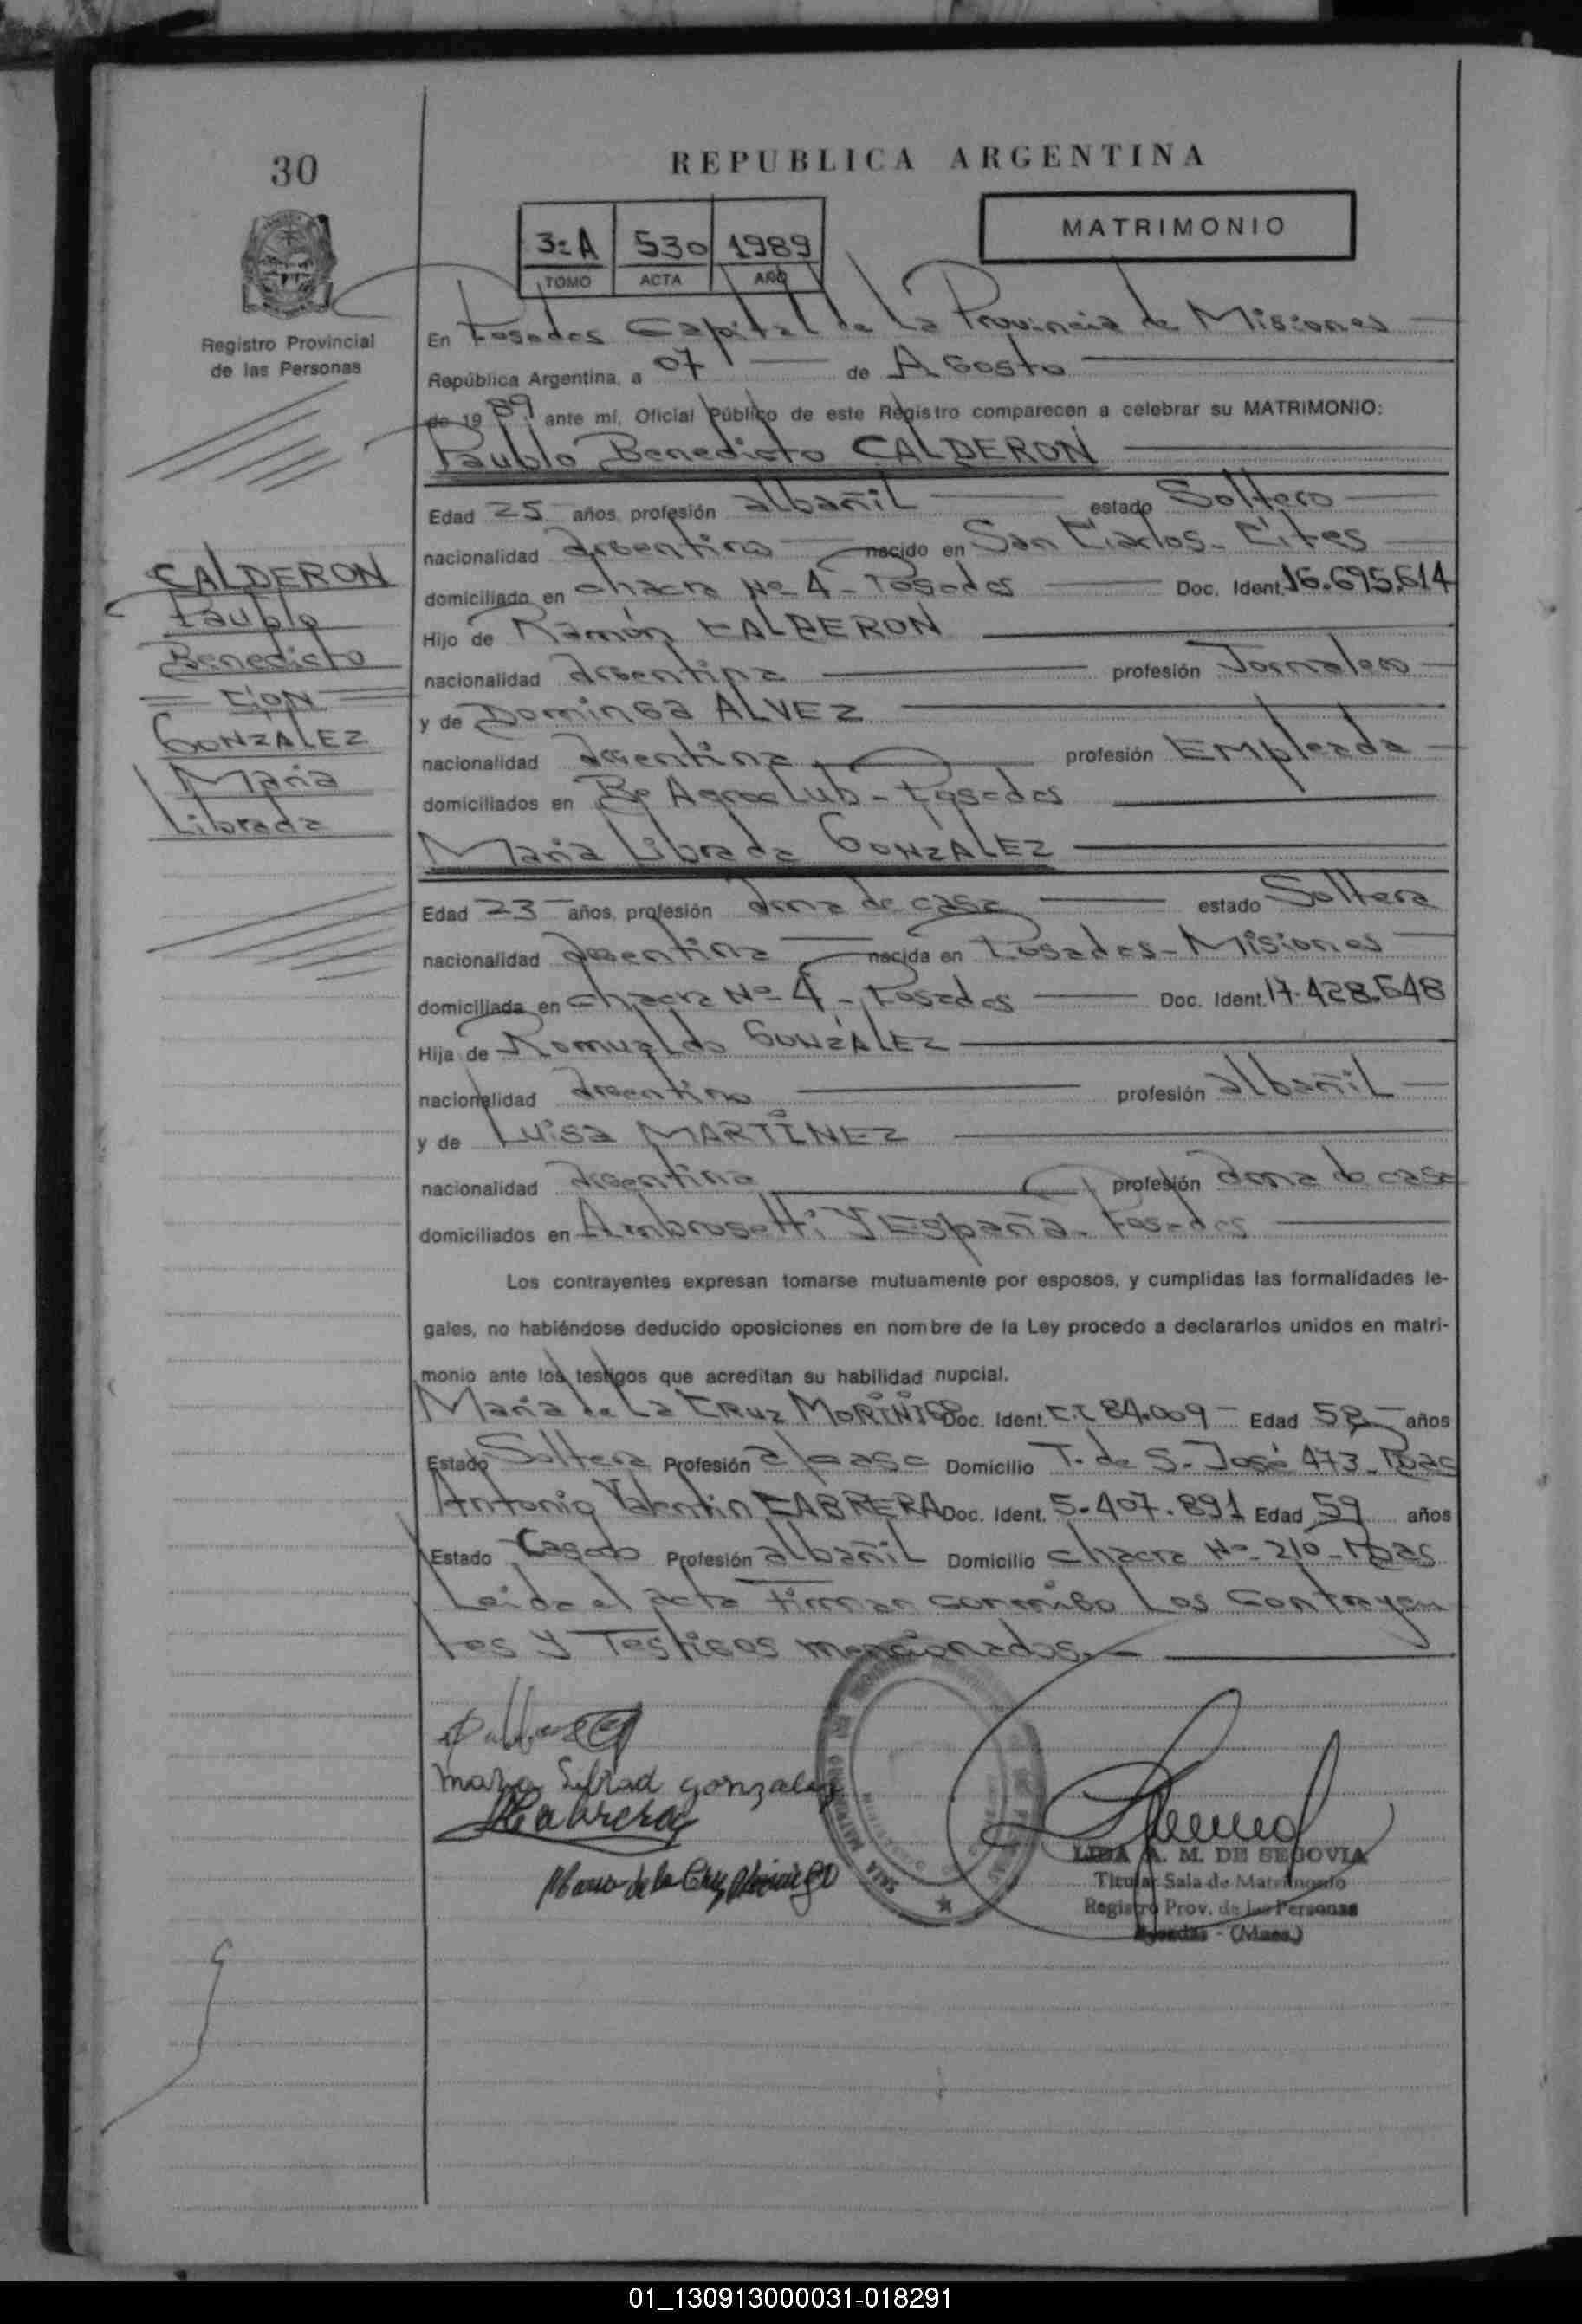 30
REPUBLICA ARGENTINA
MATRIMONIO
3=A 530 1989
TOMO ACTA AÑO
Registro Provincial
de las Personas
En Posadas Capital de La Provincia de Misiones
República Argentina, a 07 de Agosto
de 19 89 ante mí, Oficial Público de este Registro comparecen a celebrar su MATRIMONIO:
Paublo Benedicto CALDERON
Edad 25 años, profesión albañil estado Soltero
nacionalidad argentino nacido en San Carlos - Ctes
domiciliado en chacra Nº 4 - Posadas Doc. Ident. 16.695.614
Hijo de Ramón CALDERON
nacionalidad argentina profesión Jornalero
y de Dominga ALVEZ
nacionalidad argentina profesión Empleada
domiciliados en Bº Aeroclub - Posadas
CALDERON
Paublo
Benedicto
con
GONZALEZ
Maria
Librada
Maria Librada GONZALEZ
Edad 23 años, profesión ama de casa estado Soltera
nacionalidad argentina nacida en Posadas - Misiones
domiciliada en chacra Nº 4 - Posadas Doc. Ident. 17.428.648
Hija de Romualdo GONZALEZ
nacionalidad argentino profesión albañil
y de Luisa MARTINEZ
nacionalidad argentina profesión ama de casa
domiciliados en Ambrosetti y España - Posadas
Los contrayentes expresan tomarse mutuamente por esposos, y cumplidas las formalidades le-
gales, no habiéndose deducido oposiciones en nombre de la Ley procedo a declararlos unidos en matri-
monio ante los testigos que acreditan su habilidad nupcial.
Maria de La CRUZ MORINIGO Doc. Ident. C.I 84.009 Edad 58 años
Estado Soltera Profesión Domicilio T. de S. José 473 - Pdas
Antonio Valentin CABRERA Doc. Ident. 5.407.891 Edad 59 años
Estado Casado Profesión albañil Domicilio chacra Nº 210 - Pdas
Leida el acta Firman conmigo Los Contrayen
tes y Testigos mencionados.
Maria Librad gonzalez
Cabrera
Maria de la Cruz Morinigo
LIDA A. M. DE SEGOVIA
Titular Sala de Matrimonio
Registro Prov. de las Personas
Posadas - (Mnes.)
01_130913000031-018291